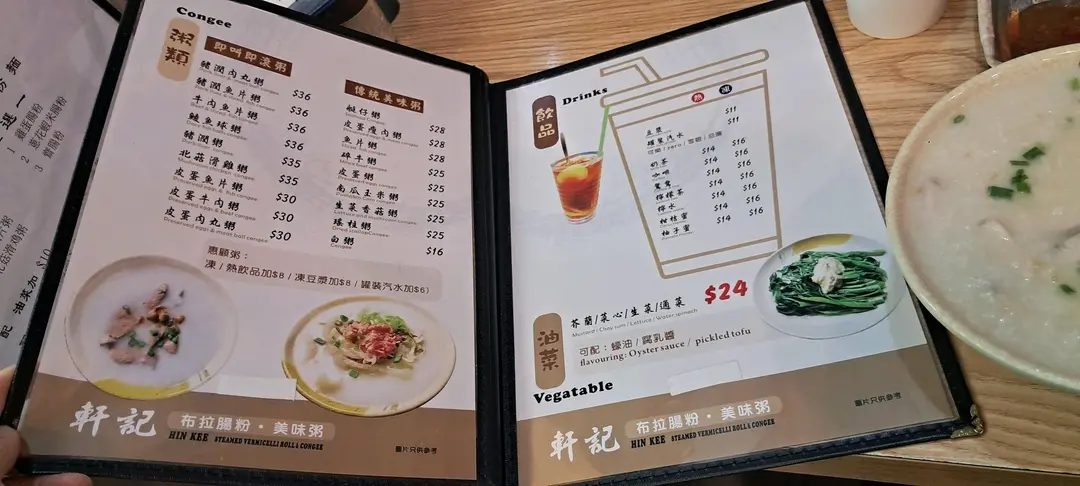 Congee
粥類
即叫即滾粥
豬潤肉丸粥 $36
豬潤魚片粥 $36
牛肉魚片粥 $36
鯪魚球粥 $36
豬潤粥 $35
北菇滑雞粥 $35
皮蛋魚片粥 $30
Preserved eggs & fish congee
皮蛋牛肉粥 $30
Preserved eggs & beef congee
皮蛋肉丸粥 $30
Preserved eggs & meat ball congee
傳統美味粥
艇仔粥 $28
皮蛋瘦肉粥 $28
魚片粥 $28
碎牛粥 $25
皮蛋粥 $25
南瓜玉米粥 $25
生菜香菇粥 $25
瑤柱粥 $25
白粥 $16
Congee
惠顧粥：
凍 / 熱飲品加$8 / 凍豆漿加$8 / 罐裝汽水加$6)
軒記
布拉腸粉・美味粥
HIN KEE STEAMED VERMICELLI ROLL & CONGEE
圖片只供參考
飲品
Drinks
熱 凍
豆漿 $11
罐裝汽水 $11
可樂 / zero / 雪碧 / 忌廉
奶茶 $14 $16
咖啡 $14 $16
鴛鴦 $14 $16
檸檬茶 $14 $16
檸水 $14 $16
柑桔蜜 $14 $16
柚子蜜 $14 $16
油菜
Vegatable
芥蘭/菜心/生菜/通菜 $24
Mustard / Choy sum / Lettuce / Water spinach
可配：蠔油 / 腐乳醬
flavouring: Oyster sauce / pickled tofu
圖片只供參考
軒記
布拉腸粉・美味粥
HIN KEE STEAMED VERMICELLI ROLL & CONGEE